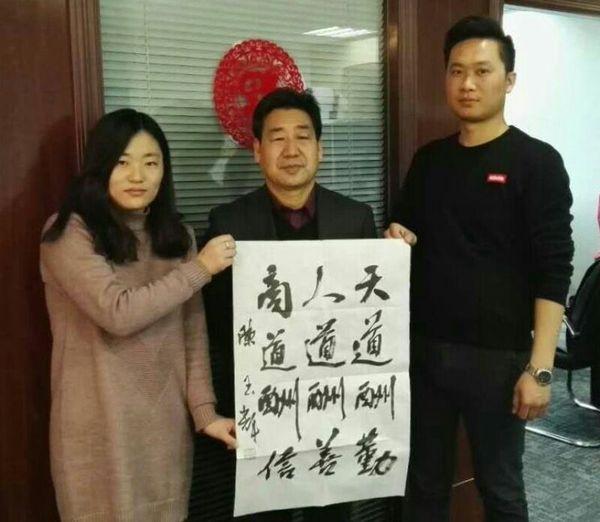 天道酬勤
人道酬善
商道酬信
陳玉